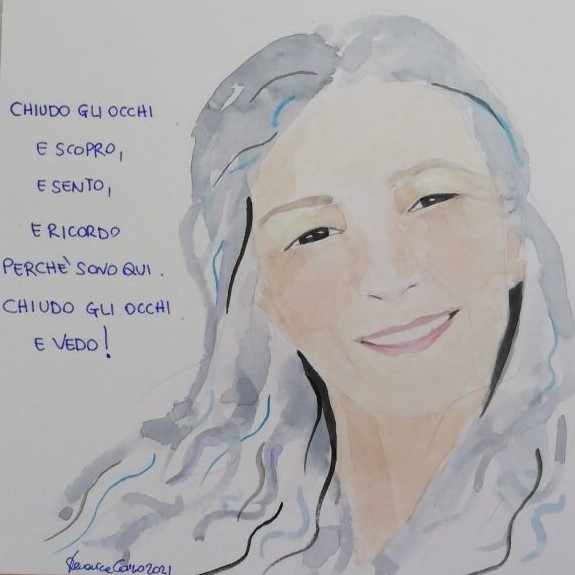 CHIUDO GLI OCCHI
E SCOPRO,
E SENTO,
E RICORDO
PERCHÈ SONO QUI.
CHIUDO GLI OCCHI
E VEDO!
2021